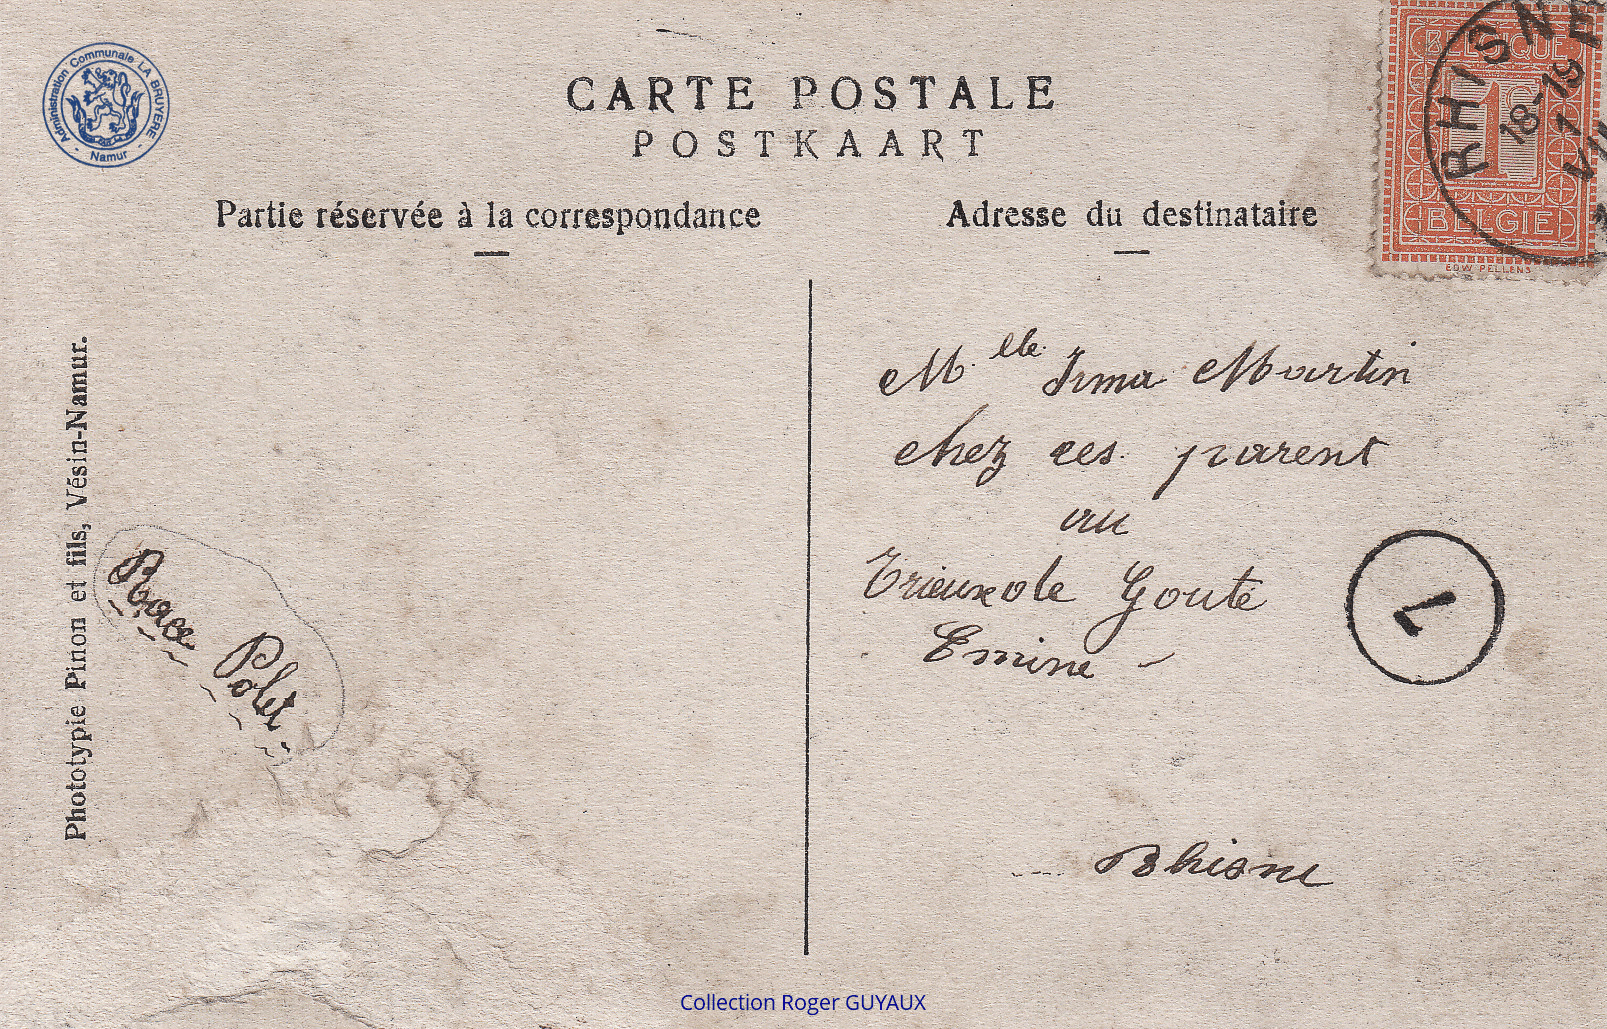 Administration Communale LA BRUYERE
- Namur -
CARTE POSTALE
POSTKAART
Partie réservée à la correspondance
Adresse du destinataire
BELGIQUE
1c
BELGIE
EDW PELLENS
RHISNE
18-19
1
VII
Phototypie Pinon et fils, Vésin-Namur.
Mlle Irma Martin
chez ces parent
au
Trieux de Goute
Emine -
1
Polet
Rhisne
Collection Roger GUYAUX